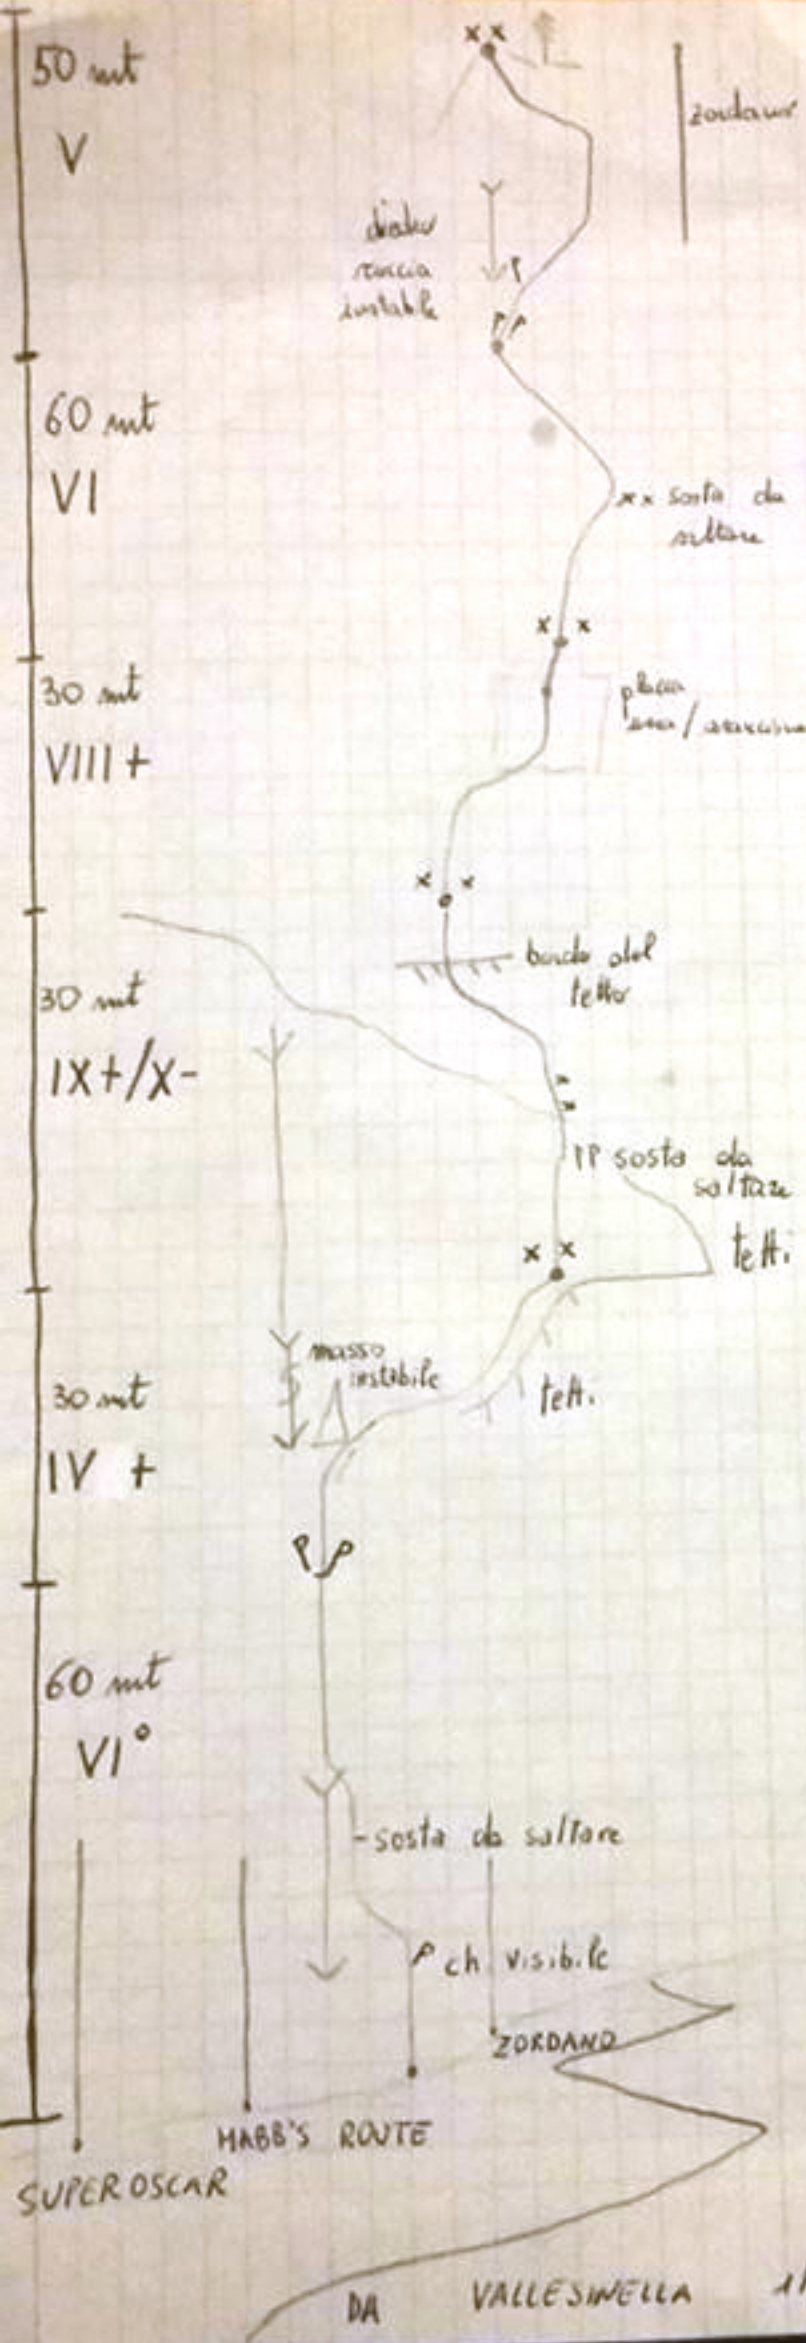 50 mt
V
diedro
roccia
instabile
60 mt
VI
xx sosta da
saltare
x x
30 mt
VIII+
placca
x x
bordo del
tetto
30 mt
IX+/X-
PP sosta da
saltare
x x
tetti
masso
instabile
30 mt
IV +
tetti
P P
60 mt
VI°
- sosta da saltare
P ch. visibile
ZORDANO
HABB'S ROUTE
SUPEROSCAR
DA VALLESINELLA